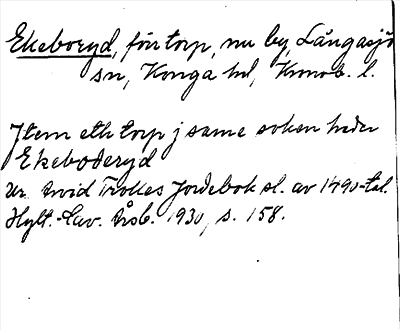 Ekeboryd, förr torp, nu by, Långasjö
sn, Konga hd, Kronob. l.
Jtem eth torp j same soken heder
Ekeboderyd
Ur Arvid Trolles Jordebok sl. av 1490-tal.
Hylt.-Cav. Årsb. 1930, s. 158.